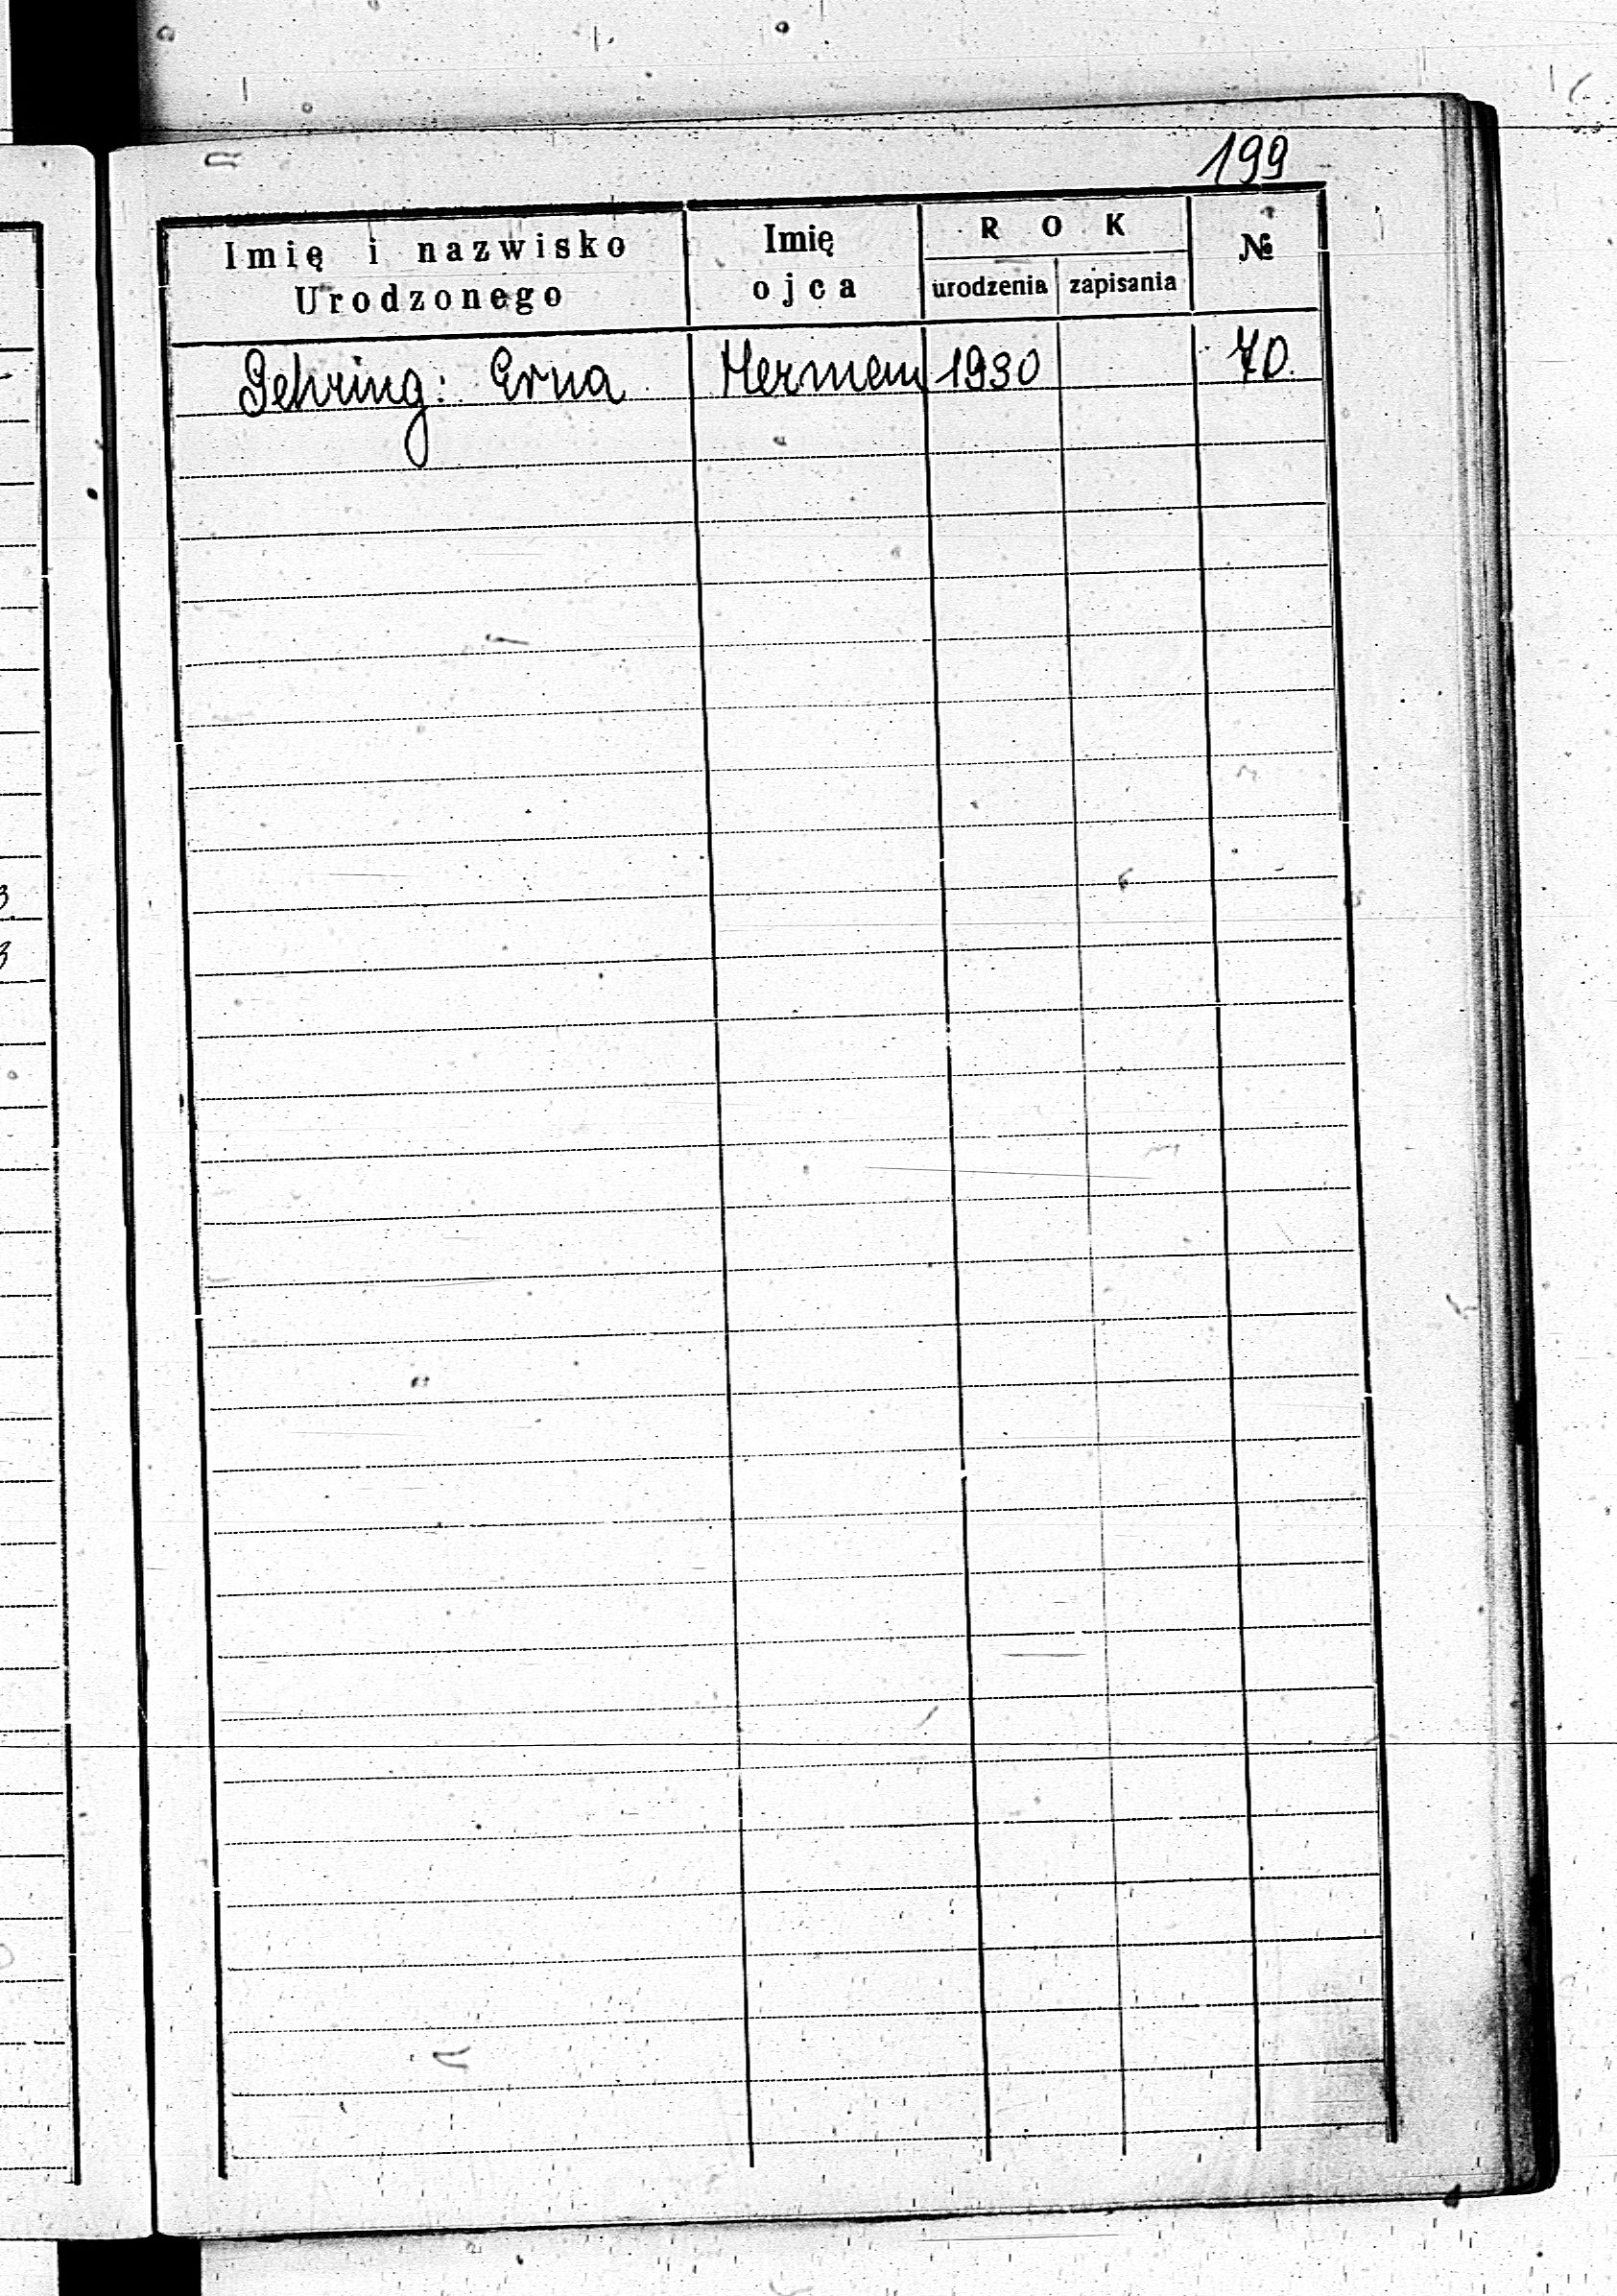 199
Imię i nazwisko Urodzonego
Imię ojca
ROK
urodzenia zapisania
№
Gehring: Erna Herman 1930 70.
3
3